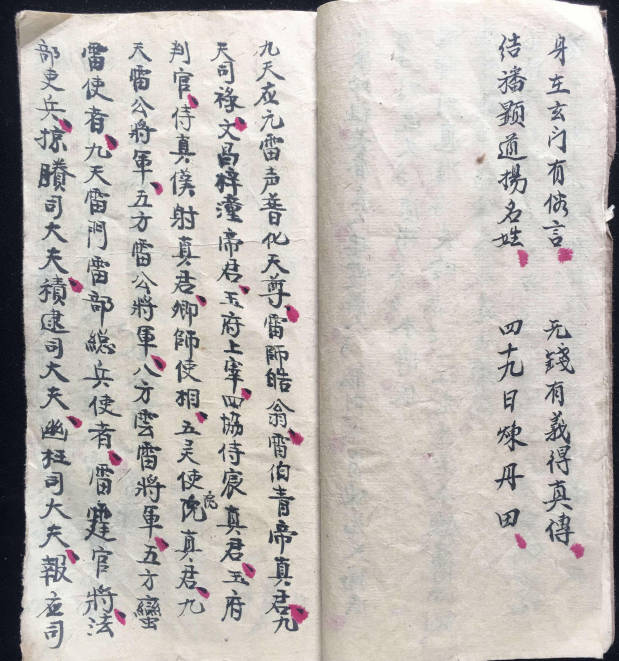 身在玄门有言 无錢有義得真傳
结播顕道揚名姓 四十九日煉丹田
九天应元雷声普化天尊雷師皓翁雷伯青帝真君九
天司祿文昌梓潼帝君玉府上宰四協侍宸真君玉府
判官侍真僕射真君卿師使相五灵使院真君九
天雷公將軍五方雷公將軍八方雲雷將軍五方蠻
雷使者九天雷門雷部総兵使者雷霆官將法
部吏兵掠賸司大夫積逮司大夫幽枉司大夫報应司